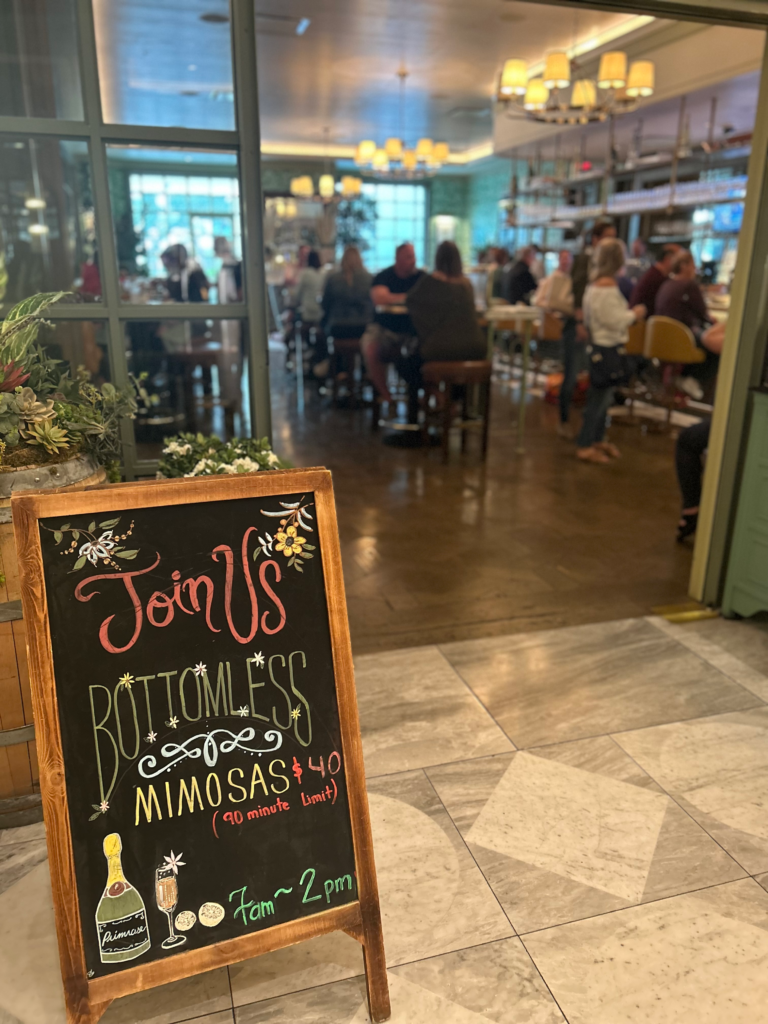 Join Us
BOTTOMLESS
MIMOSAS $40
(90 minute limit)
7am ~ 2pm
Primrose